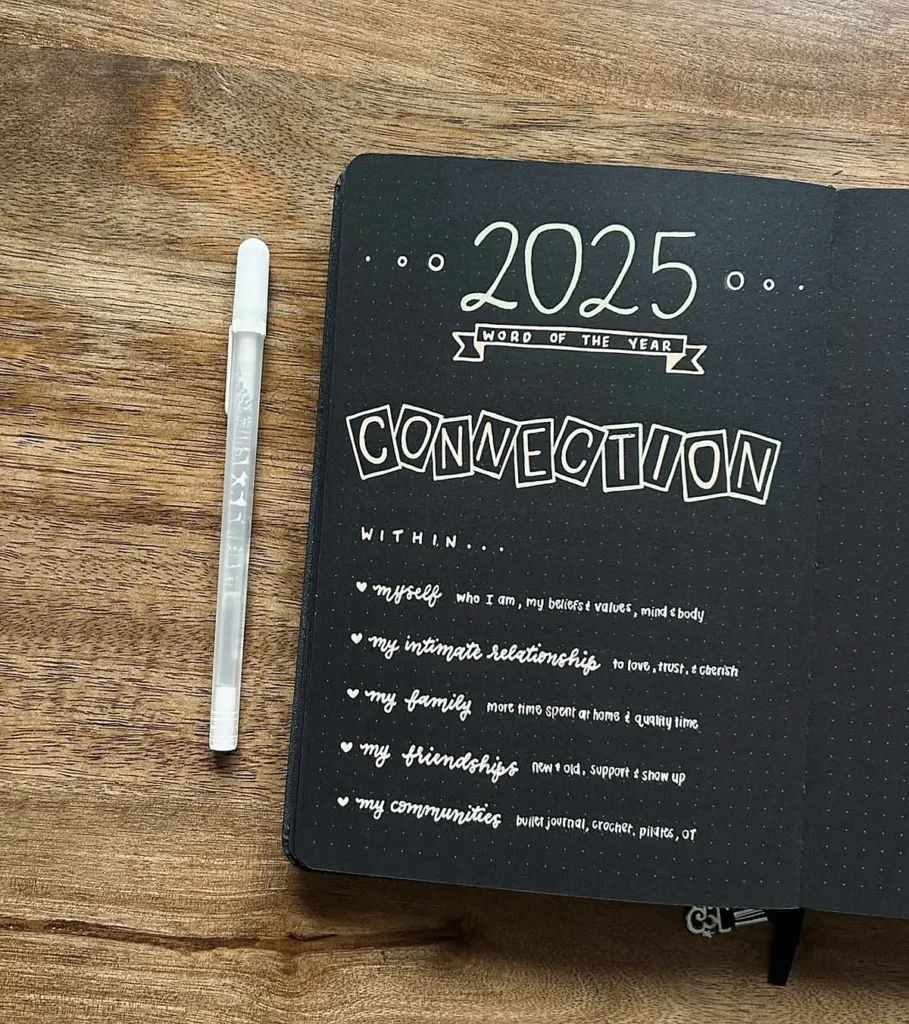 2025
WORD OF THE YEAR
CONNECTION
WITHIN...
myself who I am, my beliefs & values, mind & body
my intimate relationship to love, trust, & cherish
my family more time spent at home & quality time
my friendships new & old, support & show up
my communities bullet journal, crochet, pilates, OT